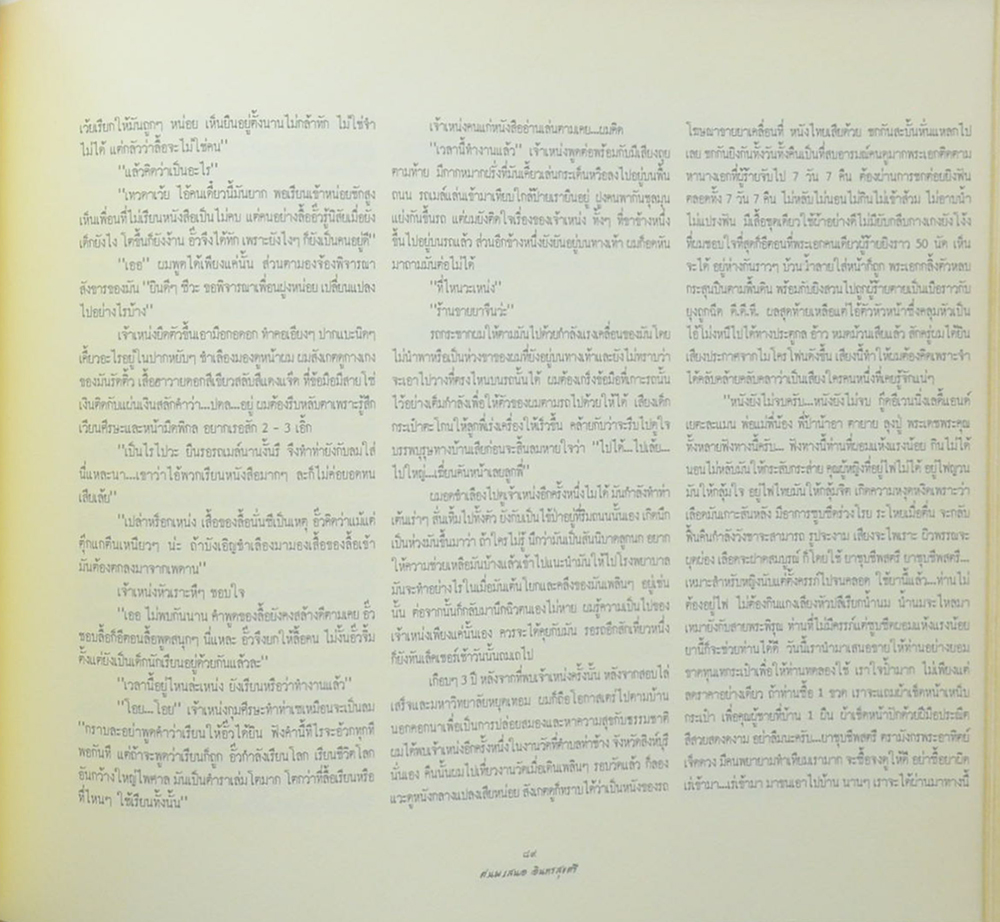 เว้ยเรียกให้มันถูกๆ หน่อย เห็นยืนอยู่ตั้งนานไม่กล้าทัก ไม่ใช่จำ
ไม่ได้ แต่กลัวว่าลื้อจะไม่ใช่คน"
"แล้วคิดว่าเป็นอะไร"
"เทวดาเว้ย ไอ้คนเดี๋ยวนี้มันยาก พอเรียนเข้าหน่อยชักสูง
เห็นเพื่อนที่ไม่เรียนหนังสือเป็นไม่คบ แต่คนอย่างลื้ออั๊วรู้นิสัยเมื่อยัง
เด็กยังไง โตขึ้นก็ยังงั้น อั๊วจึงได้ทัก เพราะยังไงๆ ก็ยังเป็นคนอยู่ดี"
"เออ" ผมพูดได้เพียงแค่นั้น ส่วนตามองจ้องพิจารณา
สังขารของมัน "ยินดีๆ ชีวะ ขอพิจารณาเพื่อนฝูงหน่อย เปลี่ยนแปลง
ไปอย่างไรบ้าง"
เจ้าเหน่งยืดตัวขึ้นเอามือกอดอก ทำคอเอียงๆ ปากแบะนิดๆ
เคี้ยวอะไรอยู่ในปากหยับๆ ชำเลืองมองดูหน้าผม ผมสังเกตดูกางเกง
ของมันรัดติ้ว เสื้อฮาวายดอกสีเขียวสลับสีแดงแจ๊ด ที่ข้อมือมีสายโซ่
เงินติดกับแผ่นเงินสลักคำว่า...ปดล...อยู่ ผมต้องรีบหลับตาเพราะรู้สึก
เวียนศีรษะและหน้ามืดพิกล อยากเรอสัก 2 - 3 เอิ้ก
"เป็นไรไปวะ ยืนรอรถเมล์นานงั้นรึ จึงทำท่ายังกับลมใส่
นี่แหละนา...เขาว่าไอ้พวกเรียนหนังสือมากๆ ละก็ไม่ค่อยอดทน
เสียเล้ย"
"เปล่าหรอกเหน่ง เสื้อของลื้อนั่นซีเป็นเหตุ อั๊วคิดว่าแม้แต่
ตุ๊กแกตีนเหนียวๆ น่ะ ถ้าบังเอิญชำเลืองมามองเสื้อของลื้อเข้า
มันต้องตกลงมาจากเพดาน"
เจ้าเหน่งหัวเราะหึๆ ชอบใจ
"เออ ไม่พบกันนาน คำพูดของลื้อยังคงสล้างดีตามเคย อั๊ว
ชอบลื้อก็อีตอนลื้อพูดสนุกๆ นี่แหละ อั๊วจึงยกให้ลื้อคน ไม่งั้นอั๊วจิ้ม
ตั้งแต่ยังเป็นเด็กนักเรียนอยู่ด้วยกันแล้วละ"
"เวลานี้อยู่ไหนล่ะเหน่ง ยังเรียนหรือว่าทำงานแล้ว"
"โอย...โอย" เจ้าเหน่งกุมศีรษะทำท่าเซเหมือนจะเป็นลม
"กราบละอย่าพูดคำว่าเรียนให้อั๊วได้ยิน ฟังคำนี้ทีไรจะอ้วกทุกที
พอกันที แต่ถ้าจะพูดว่าเรียนก็ถูก อั๊วกำลังเรียนโลก เรียนชีวิตโลก
อันกว้างใหญ่ไพศาล มันเป็นตำราเล่มโตมาก โตกว่าที่ลื้อเรียนหรือ
ที่ไหนๆ ใช้เรียนทั้งนั้น"
เจ้าเหน่งคนแก่หนังสืออ่านเล่นตามเคย...ผมคิด
"เวลานี้ทำงานแล้ว" เจ้าเหน่งพูดต่อพร้อมกับมีเสียงถุย
ตามท้าย มีกากหมากฝรั่งที่มันเคี้ยวเล่นกระเด็นหวือลงไปอยู่บนพื้น
ถนน รถเมล์แล่นเข้ามาเทียบใกล้ป้ายเรายืนอยู่ ฝูงคนพากันชุลมุน
แย่งกันขึ้นรถ แต่ผมยังติดใจเรื่องของเจ้าเหน่ง ทั้งๆ ที่ขาข้างหนึ่ง
ขึ้นไปอยู่บนรถแล้ว ส่วนอีกข้างหนึ่งยังยันอยู่บนทางเท้า ผมก็อดหัน
มาถามมันต่อไม่ได้
"ที่ไหนวะเหน่ง"
"ร้านขายยาจีนว่ะ"
รถกระชากผมให้ตามมันไปด้วยกำลังแรงเคลื่อนของมันโดย
ไม่นำพาหรือเป็นห่วงขาของผมที่ยังอยู่บนทางเท้าและยังไม่ทราบว่า
จะเอาไปวางที่ตรงไหนบนรถนั้นได้ ผมต้องเกร็งข้อมือที่เกาะรถนั้น
ไว้อย่างเต็มกำลังเพื่อให้ตัวของผมตามรถไปด้วยให้ได้ เสียงเด็ก
กระเป๋าตะโกนให้ลูกพี่เร่งเครื่องให้เร็วขึ้น คล้ายกับว่าจะรีบไปดูใจ
บรรพบุรุษทางบ้านเสียก่อนจะสิ้นลมหายใจว่า "ไปได้...ไปเล้ย...
ไปใหญ่...เชี่ยนคันหน้าเลยลูกพี่"
ผมอดชำเลืองไปดูเจ้าเหน่งอีกครั้งหนึ่งไม่ได้ มันกำลังทำท่า
เต้นเร่าๆ สั่นเทิ้มไปทั้งตัว ยังกับเป็นไข้ป่าอยู่ที่ริมถนนนั่นเอง เกิดนึก
เป็นห่วงมันขึ้นมาว่า ถ้าใครไม่รู้ นึกว่ามันเป็นสันนิบาตลูกนก อยาก
ให้ความช่วยเหลือมันบ้างแล้วเข้าไปแนะนำมันให้ไปโรงพยาบาล
มันจะทำอย่างไรในเมื่อมันเต้นโยกและคลึงของมันเพลินๆ อยู่เช่น
นั้น ต่อจากนั้นก็กลับมานึกฉิวตนเองไม่หาย ผมรู้ความเป็นไปของ
เจ้าเหน่งเพียงแค่นั้นเอง ควรจะได้คุยกับมัน รอรถอีกสักเที่ยวหนึ่ง
ก็ยังทันเล็คเชอร์เช้าวันนั้นถมเถไป
เกือบๆ 3 ปี หลังจากที่พบเจ้าเหน่งครั้งนั้น หลังจากสอบไล่
เสร็จและมหาวิทยาลัยหยุดเทอม ผมก็ถือโอกาสเตร่ไปตามบ้าน
นอกคอกนาเพื่อเป็นการปล่อยสมองและหาความสุขกับธรรมชาติ
ผมได้พบเจ้าเหน่งอีกครั้งหนึ่งในงานวัดที่ตำบลท่าช้าง จังหวัดสิงห์บุรี
นั่นเอง คืนนั้นผมไปเที่ยวงานวัดเมื่อเดินเพลินๆ รอบวัดแล้ว ก็ลอง
แวะดูหนังกลางแปลงเสียหน่อย สังเกตดูก็ทราบได้ว่าเป็นหนังของรถ
โฆษณาขายยาเคลื่อนที่ หนังไทยเสียด้วย ชกกันสะบั้นหั่นแหลกไป
เลย ชกกันยิงกันทั้งวันทั้งคืนเป็นที่สบอารมณ์คนดูมากพระเอกติดตาม
หานางเอกที่ผู้ร้ายจับไป 7 วัน 7 คืน ต้องผ่านการชกต่อยยิงฟัน
ตลอดทั้ง 7 วัน 7 คืน ไม่หลับไม่นอนไม่กินไม่เข้าส้วม ไม่อาบน้ำ
ไม่แปรงฟัน มีเสื้อชุดเดียวใช้ผ้าอย่างดีไม่มียับกลีบกางเกงยังโง้ง
ที่ผมชอบใจที่สุดก็อีตอนที่พระเอกคนเดียวผู้ร้ายยิงราว 50 นัด เห็น
จะได้ อยู่ห่างกันราวๆ บ้วนน้ำลายใส่หน้าก็ถูก พระเอกกลิ้งตัวหลบ
กระสุนปืนตามพื้นดิน พร้อมกับยิงสวนไปถูกผู้ร้ายตายเป็นเบือราวกับ
ยุงถูกฉีด ดี.ดี.ที. ผลสุดท้ายเหลือแต่ไอ้ตัวหัวหน้าซึ่งคลุมหัวเป็น
ไอ้โม่งหนีไปได้ทางประตูกล อ้าว หมดม้วนเสียแล้ว สักครู่ผมได้ยิน
เสียงประกาศจากไมโครโฟนดังขึ้น เสียงนี้ทำให้ผมต้องคิดเพราะจำ
ได้คลับคล้ายคลับคลาว่าเป็นเสียงใครคนหนึ่งที่เคยรู้จักแน่ๆ
"หนังยังไม่จบครับ...หนังยังไม่จบ กู๊ดอีเวนนิ่งเลดี้แอนด์
เยคะละแมน พ่อแม่พี่น้อง พี่ป้าน้าอา ตายาย ลุงปู่ พระเดชพระคุณ
ทั้งหลายฟังทางนี้ครับ... ฟังทางนี้ท่านที่ผอมแห้งแรงน้อย กินไม่ได้
นอนไม่หลับมันให้กระสับกระส่าย คุณผู้หญิงที่อยู่ไฟไม่ได้ อยู่ไฟญวน
มันให้กลุ้มใจ อยู่ไฟไทยมันให้กลุ้มจิต เกิดความหงุดหงิดเพราะว่า
เลือดมันเกาะสันหลัง มีอาการซูบซีดร่วงโรย ระโหยเมื่อตื่น จะกลับ
ฟื้นคืนกำลังวังชาจะสามารถ รูปจะงาม เสียงจะไพเราะ ผิวพรรณจะ
ผุดผ่อง เลือดจะฝาดสมบูรณ์ ก็โดยใช้ ยาชูบชีพสตรี ยาชูบชีพสตรี...
เหมาะสำหรับหญิงนับแต่ตั้งครรภ์ไปจนคลอด ใช้ยานี้แล้ว...ท่านไม่
ต้องอยู่ไฟ ไม่ต้องกินแกงเลียงหัวปลีเรียกน้ำนม น้ำนมจะไหลมา
เทมายังกับสายพระพิรุณ ท่านที่ไม่มีครรภ์แต่ซูบซีดผอมแห้งแรงน้อย
ยานี้ก็จะช่วยท่านได้ดี วันนี้เรานำมาเสนอขายให้ท่านอย่างยอม
ขาดทุนเทกระเป๋าเพื่อให้ท่านทดลองใช้ เราใจป้ำมาก ไม่เพียงแต่
ลดราคาอย่างเดียว ถ้าท่านซื้อ 1 ขวด เราจะแถมผ้าเช็ดหน้าเหน็บ
กระเป๋า เพื่อคุณผู้ชายที่บ้าน 1 ผืน ผ้าเช็ดหน้าปักด้วยฝีมือประณีต
สีสวยสดงดงาม อย่าลืมนะครับ...ยาชูบชีพสตรี ตรามังกรพระอาทิตย์
เจ็ดดวง มีคนพยายามทำเทียมเรามาก จะซื้อจงดูให้ดี อย่าซื้อยาผิด
เร่เข้ามา...เร่เข้ามา มาขนเอาไปบ้าน นานๆ เราจะได้ผ่านมาทางนี้
๘๙